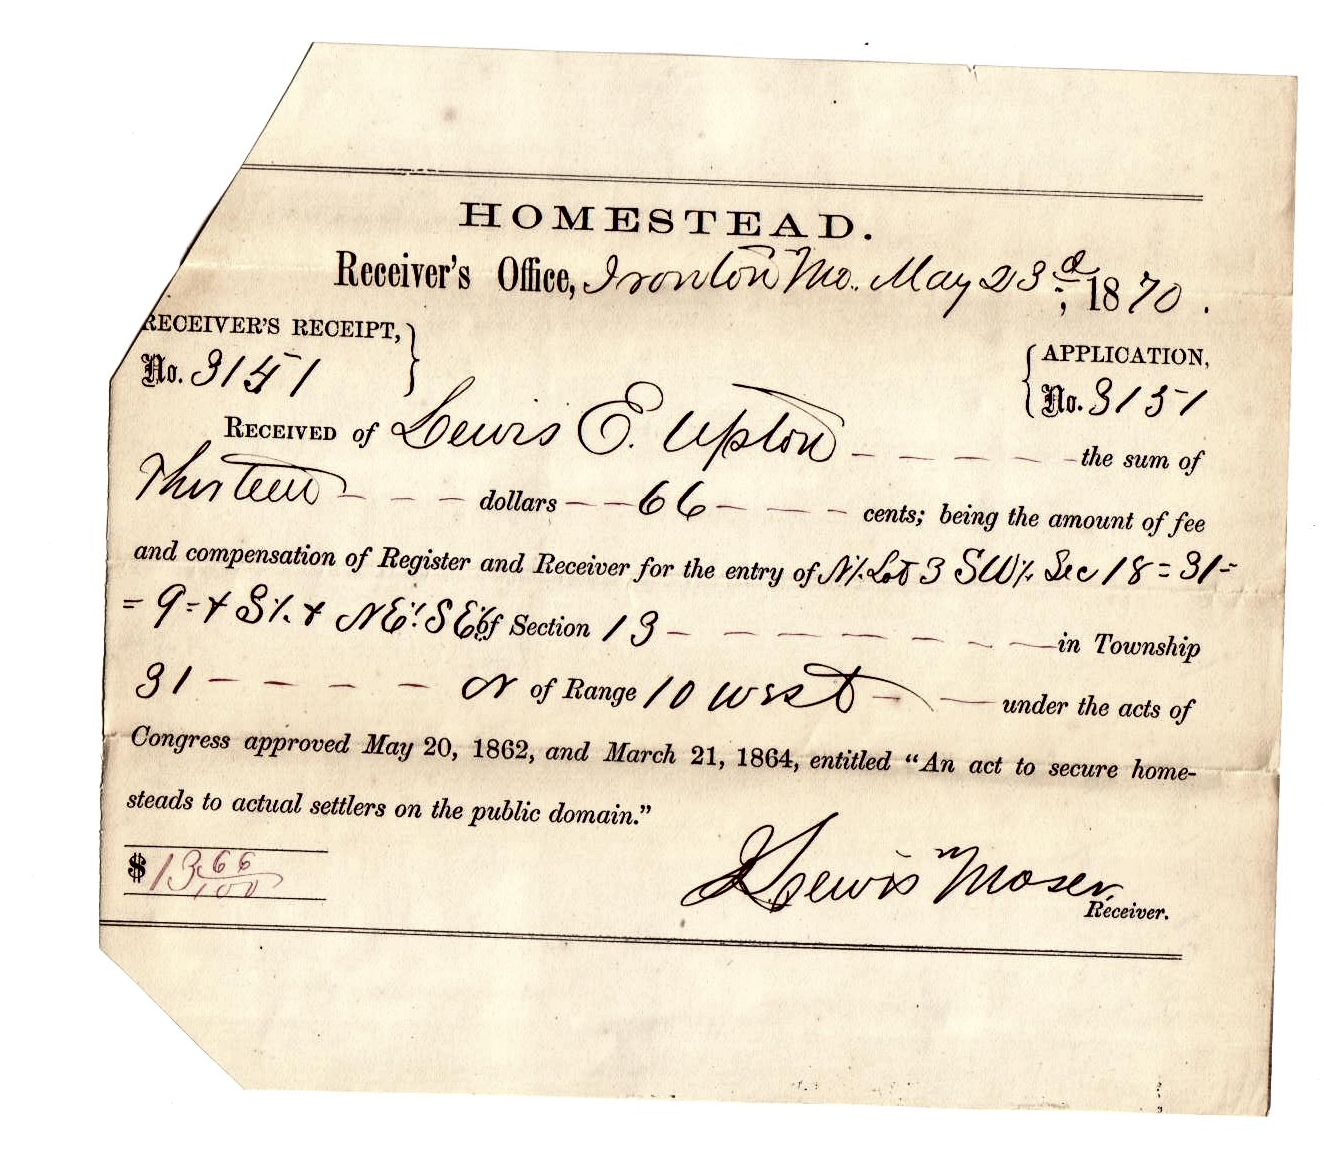 HOMESTEAD.
Receiver's Office, Ironton Mo. May 23d, 1870.
RECEIVER'S RECEIPT,
No. 3151
APPLICATION,
No. 3151
RECEIVED of Lewis E. Upton - - - - - the sum of
Thirteen - - - dollars - - 66 - - - cents; being the amount of fee
and compensation of Register and Receiver for the entry of N½ Lot 3 SW¼ Sec 18 = 31 =
= 9 = & S½ & NE¼ SE¼ of Section 13 - - - - - - - in Township
31 - - - - N of Range 10 west - - under the acts of
Congress approved May 20, 1862, and March 21, 1864, entitled “An act to secure home-
steads to actual settlers on the public domain.”
$13 66/100
Lewis Moser,
Receiver.